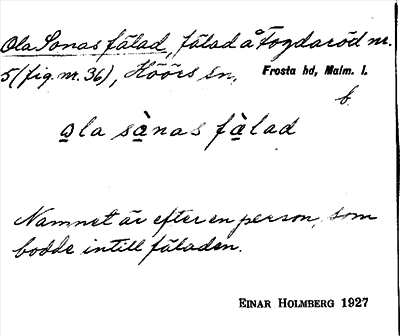 Ola Sonas fälad, fälad å Fogdaröd nr.
5 (fig. nr. 36), Höörs sn, Frosta hd, Malm. l.
b.
ola sànas fàlad
Namnet är efter en person, som
bodde intill fäladen.
EINAR HOLMBERG 1927